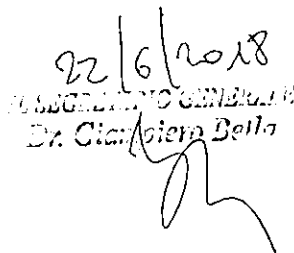 22/6/2018
IL SEGRETARIO GENERALE
Dr. Giampiero Bella